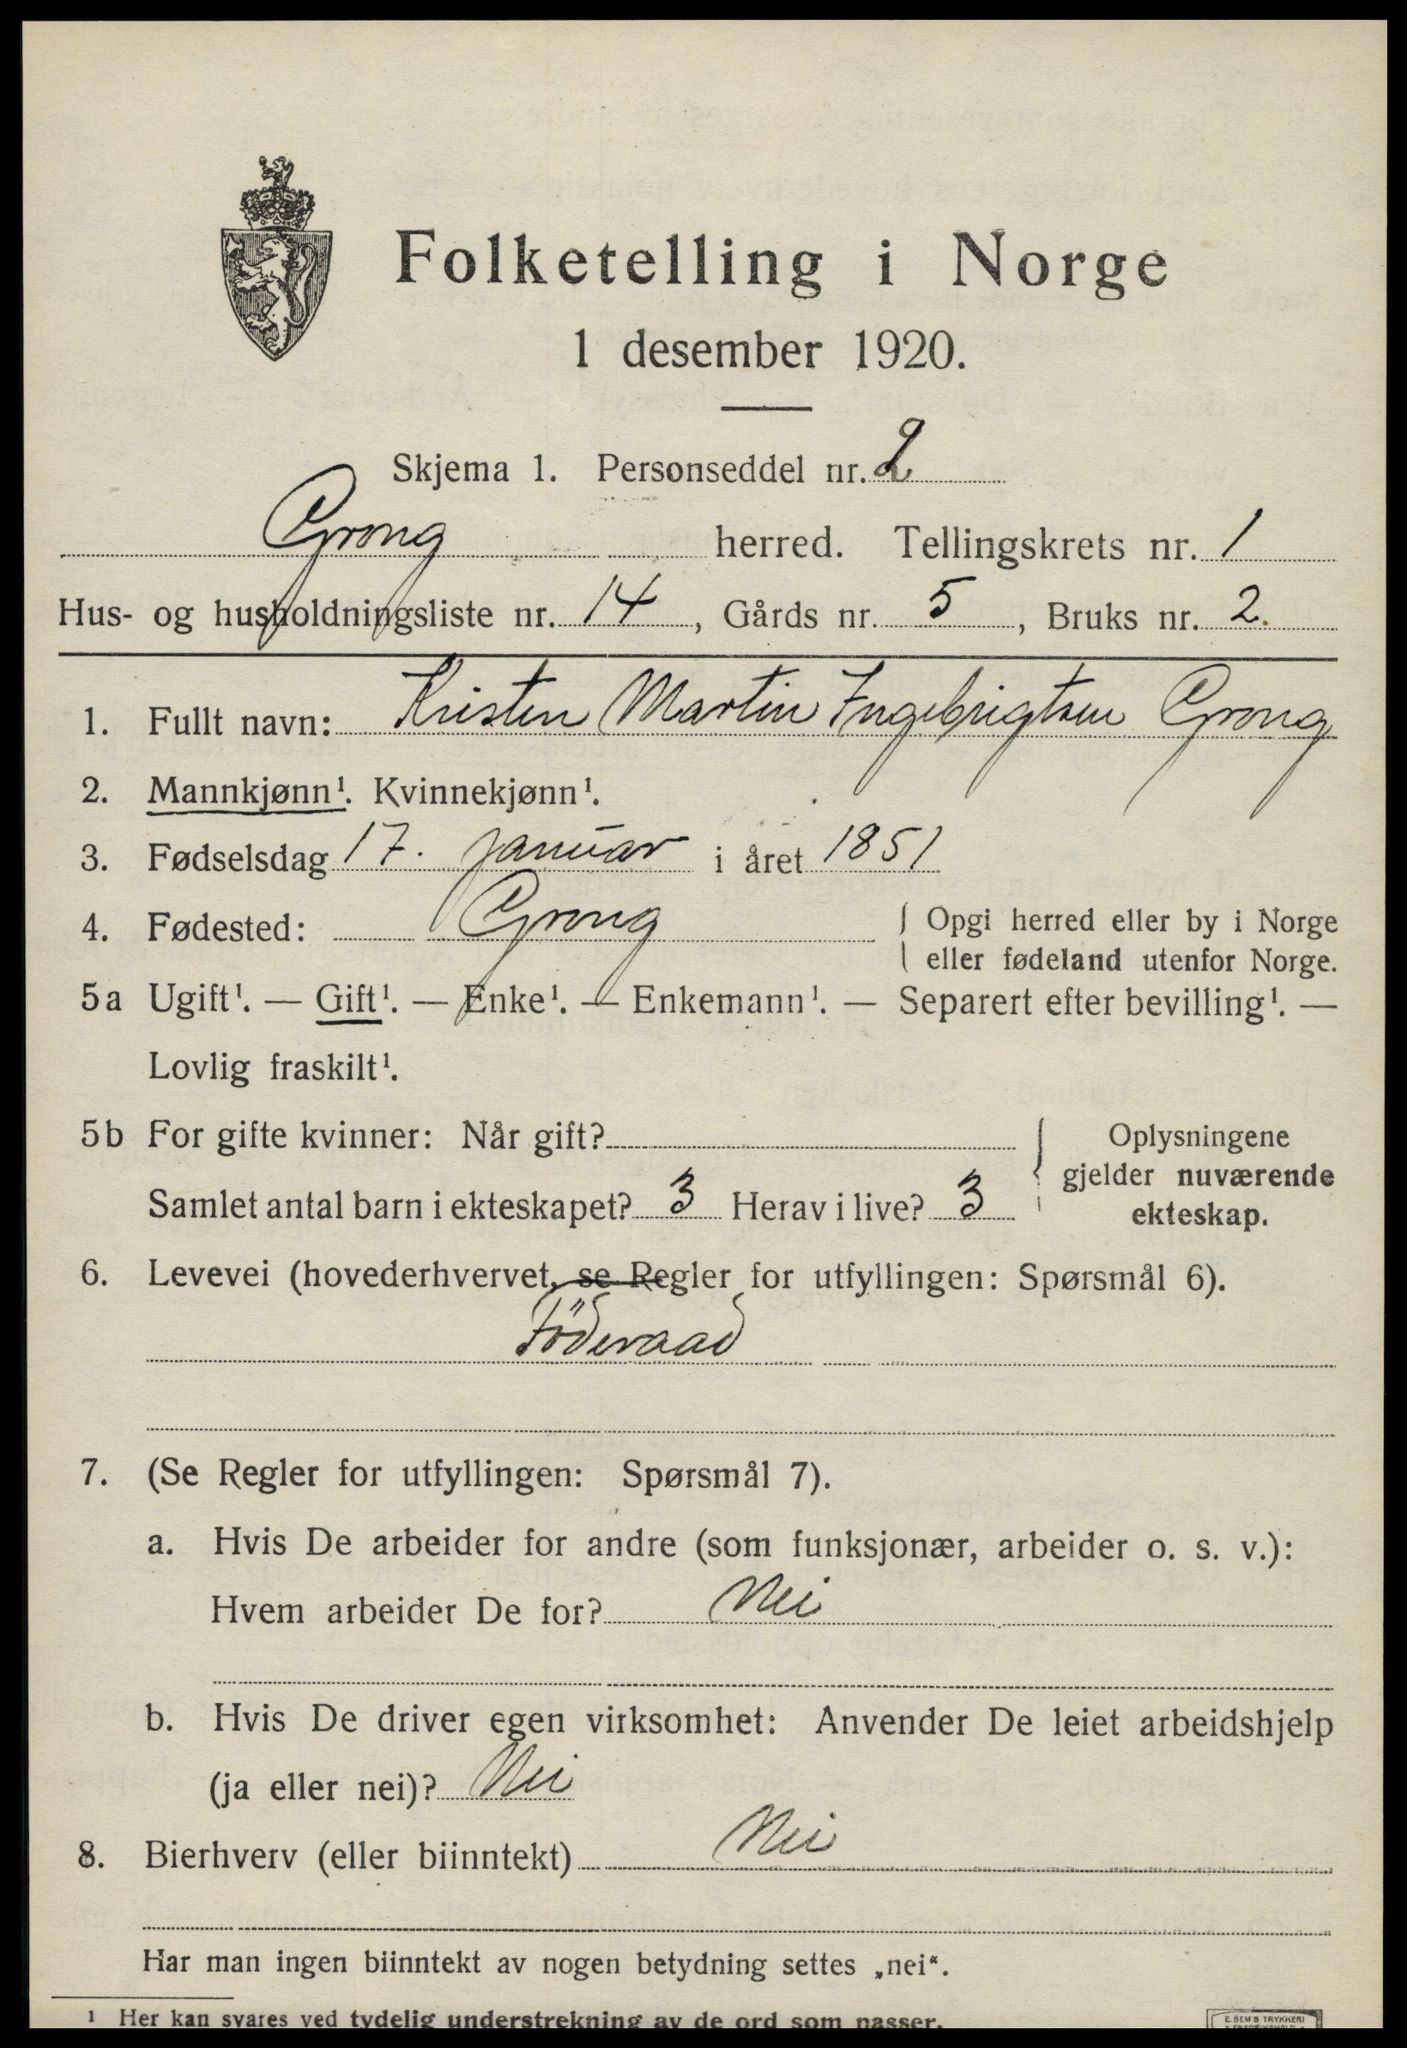 Folketelling i Norge
1 desember 1920.
Skjema 1. Personseddel nr. 2
Grong herred. Tellingskrets nr. 1
Hus- og husholdningsliste nr. 14, Gårds nr. 5, Bruks nr. 2.
1. Fullt navn: Kristen Martin Ingebrigtsen Grong
2. Mannkjønn¹. Kvinnekjønn¹.
3. Fødselsdag 17. januar i året 1851
4. Fødested: Grong { Opgi herred eller by i Norge
eller fødeland utenfor Norge.
5a Ugift¹. — Gift¹. — Enke¹. — Enkemann¹. — Separert efter bevilling¹. —
Lovlig fraskilt¹.
5b For gifte kvinner: Når gift?
Samlet antal barn i ekteskapet? 3 Herav i live? 3
Oplysningene
gjelder nuværende
ekteskap.
6. Levevei (hovederhvervet, se Regler for utfyllingen: Spørsmål 6).
Föderaad
7. (Se Regler for utfyllingen: Spørsmål 7).
a. Hvis De arbeider for andre (som funksjonær, arbeider o. s. v.):
Hvem arbeider De for? Nei
b. Hvis De driver egen virksomhet: Anvender De leiet arbeidshjelp
(ja eller nei)? Nei
8. Bierhverv (eller biinntekt) Nei
Har man ingen biinntekt av nogen betydning settes „nei“.
¹ Her kan svares ved tydelig understrekning av de ord som passer.
E. SEM'S TRYKKERI
FREDRIKSHALD